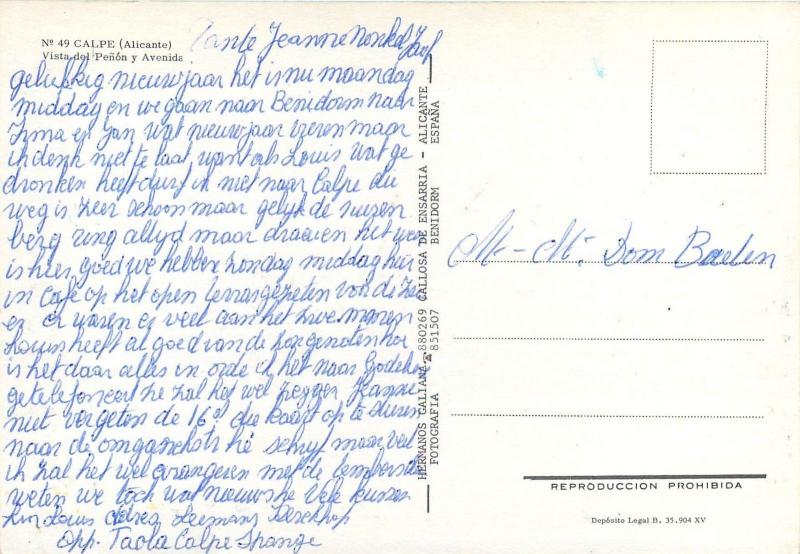 Nº 49 CALPE (Alicante)
Vista del Peñón y Avenida
Tante Jeanne Nonkel Jaaf
gelukkig nieuwjaar het is nu maandag
middag en we gaan naar Benidorm naar
Irma en Jan wat nieuwjaar vieren maar
ik denk niet te laat want als Louis wat ge
dronken heeft durf ik niet naar Calpe die
weg is zeer schoon maar gelijk de muizen
berg ring altyd maar draaien het weer
is hier goed we hebben zondag middag hier
in Cafe op het open terras gezeten voor de zee
en er waren er veel aan het zwemmen
Louis heeft al goed van de zon genoten hoe
is het daar alles in orde ik het naar Godelieve
getelefoneerd ze zal het wel zeggen Jeanne
niet vergeten de 16e die kaart op te sturen
naar de hé schrijf maar veel
ik zal het wel met de
weten we toch wat nieuws hé Vele kussen
Louis
opp. Calpe Spanje
HERMANOS GALIANA ☎ 880269 CALLOSA DE ENSARRIA - ALICANTE
FOTOGRAFIA ☎ 851507 BENIDORM ESPAÑA
M. - M. Dom Baelen
REPRODUCCION PROHIBIDA
Depósito Legal B. 35.904 XV